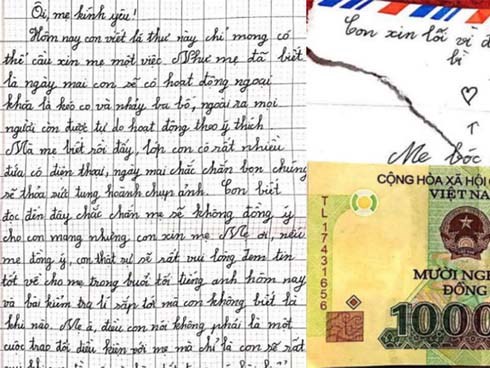 Ôi, mẹ kính yêu!
Hôm nay con viết lá thư này chỉ mong có
thể cầu xin mẹ một việc. Như mẹ đã biết
là ngày mai con sẽ có hoạt động ngoại
khóa là kéo co và nhảy ba bố, ngoài ra mọi
người còn được tự do hoạt động theo ý thích
Mà mẹ biết rồi đấy, lớp con có rất nhiều
đứa có điện thoại, ngày mai chắc chắn bọn chúng
sẽ thỏa sức tung hoành chụp ảnh. Con biết
đọc đến đây chắc chắn mẹ sẽ không đồng ý
cho con mang nhưng con xin mẹ. Mẹ ơi, nếu
mẹ đồng ý, con thật sự sẽ rất vui lòng đem tin
tốt về cho mẹ trong buổi tối tiếng anh hôm nay
và bài kiểm tra lí sắp tới mà con không biết là
khi nào. Mẹ à, điều con nói không phải là một
cuộc trao đổi điều kiện với mẹ mà chỉ là con sẽ rất
Con xin lỗi vì đ
bì
Mẹ bóc
CỘNG HÒA XÃ HỘI C
VIỆT NA
TL 17431656
MƯỜI NGH
ĐỒNG
10.00